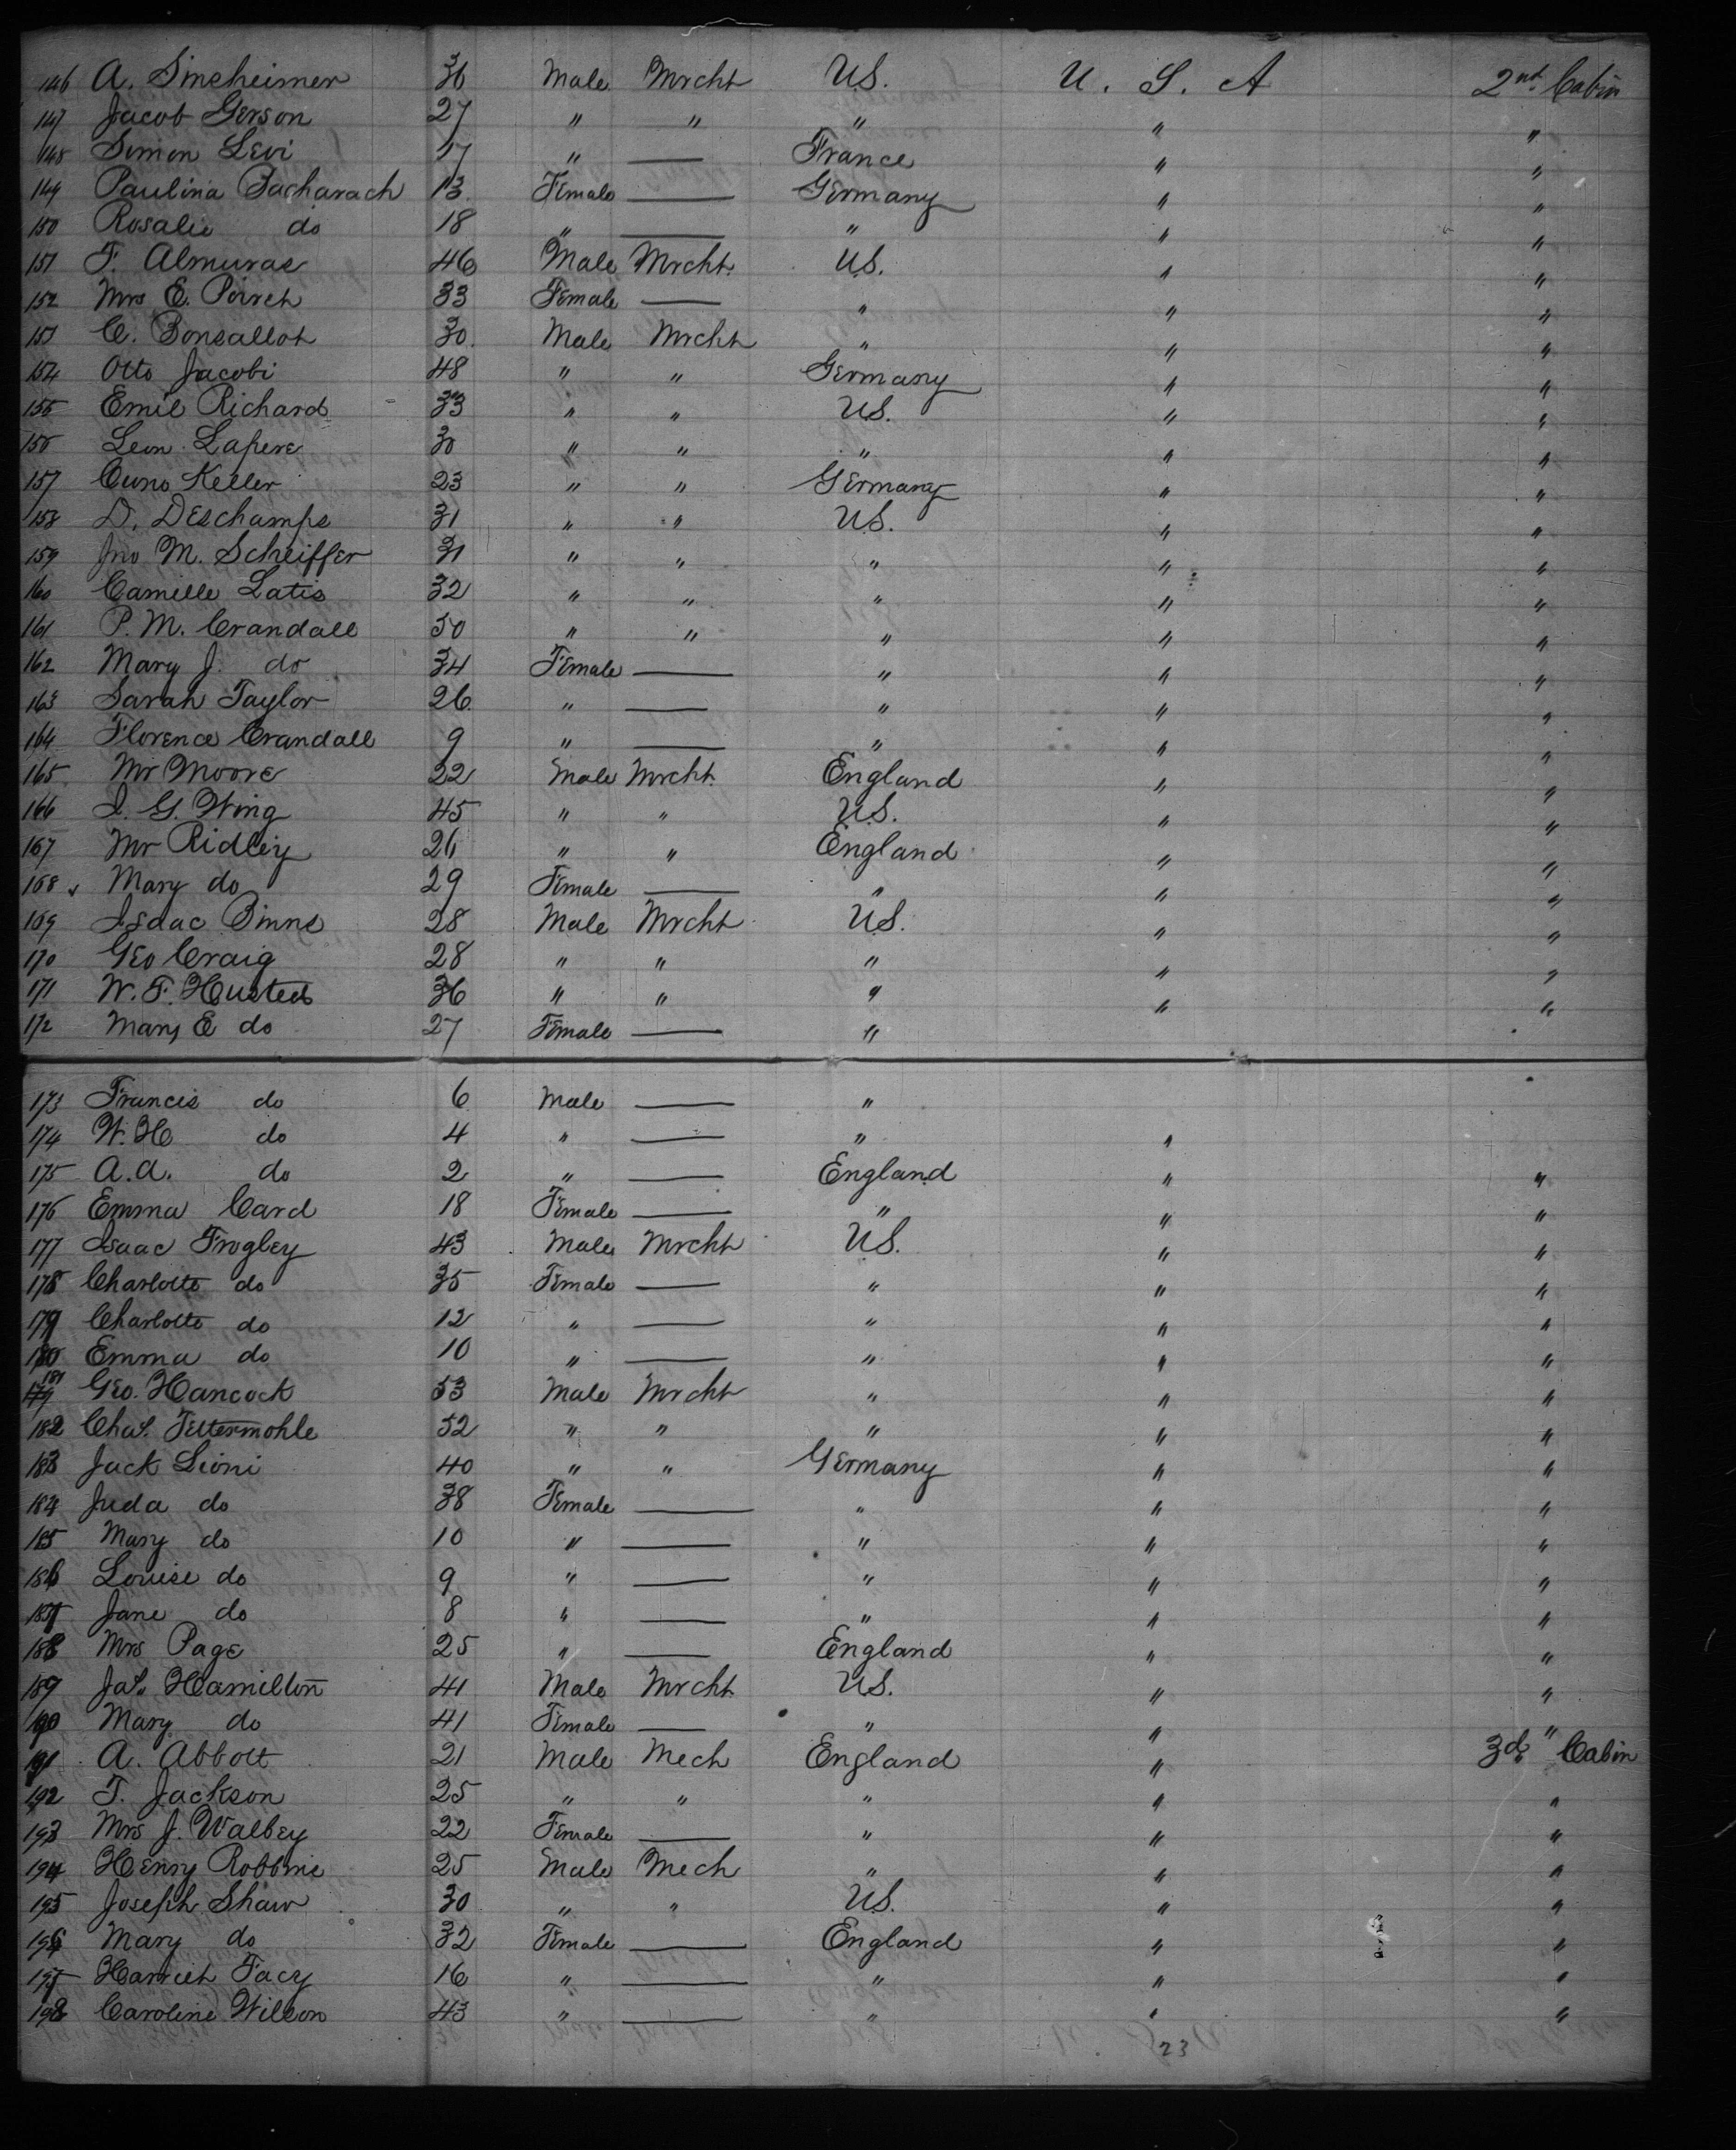 146 A. Sinsheimer 36 Male Mrcht U.S. U. S. A 2nd Cabin
147 Jacob Gerson 27 " " " " "
148 Simon Levi 17 " — France " "
149 Paulina Bacharach 13 Female — Germany " "
150 Rosalie do 18 " — " " "
151 F. Almuras 46 Male Mrcht. U.S. " "
152 Mrs E. Poirch 33 Female — " " "
153 C. Bonsallot 30. Male Mrcht " " "
154 Otto Jacobi 48 " " Germany " "
155 Emil Richard 33 " " U.S. " "
156 Leon Lapere 30 " " " " "
157 Cuno Keller 23 " " Germany " "
158 D. Deschamps 31 " " U.S. " "
159 Jno M. Scheiffer 31 " " " " "
160 Camille Latis 32 " " " " "
161 P. M. Crandall 50 " " " " "
162 Mary J. do 34 Female — " " "
163 Sarah Taylor 26 " — " " "
164 Florence Crandall 9 " — " " "
165 Mr Moore 22 Male Mrcht. England " "
166 I. G. Wing 45 " " U.S. " "
167 Mr Ridley 26 " " England " "
168 Mary do 29 Female — " " "
169 Isaac Binns 28 Male Mrcht U.S. " "
170 Geo Craig 28 " " " " "
171 W. F. Husted 36 " " " " "
172 Mary E do 27 Female — "
173 Francis do 6 Male — "
174 W. H do 4 " — " "
175 A. A. do 2 " — England " "
176 Emma Card 18 Female — " " "
177 Isaac Frogley 43 Male Mrcht U.S. " "
178 Charlotte do 35 Female — " " "
179 Charlotte do 12 " — " " "
180 Emma do 10 " — " " "
181 Geo. Hancock 53 Male Mrcht " " "
182 Chas. Tettermohle 52 " " " " "
183 Jack Lioni 40 " " Germany " "
184 Juda do 38 Female — " " "
185 Mary do 10 " — " " "
186 Louise do 9 " — " " "
187 Jane do 8 " — " " "
188 Mrs Page 25 " — England " "
189 Jas. Hamilton 41 Male Mrcht U.S. " "
190 Mary do 41 Female — " " "
191 A. Abbott 21 Male Mech England " 3d Cabin
192 T. Jackson 25 " " " " "
193 Mrs J. Walbey 22 Female — " " "
194 Henry Robbins 25 Male Mech " " "
195 Joseph Shaw 30 " " U.S. " "
196 Mary do 32 Female — England " "
197 Harriet Facy 16 " — " " "
198 Caroline Wilson 43 " — " " "
23